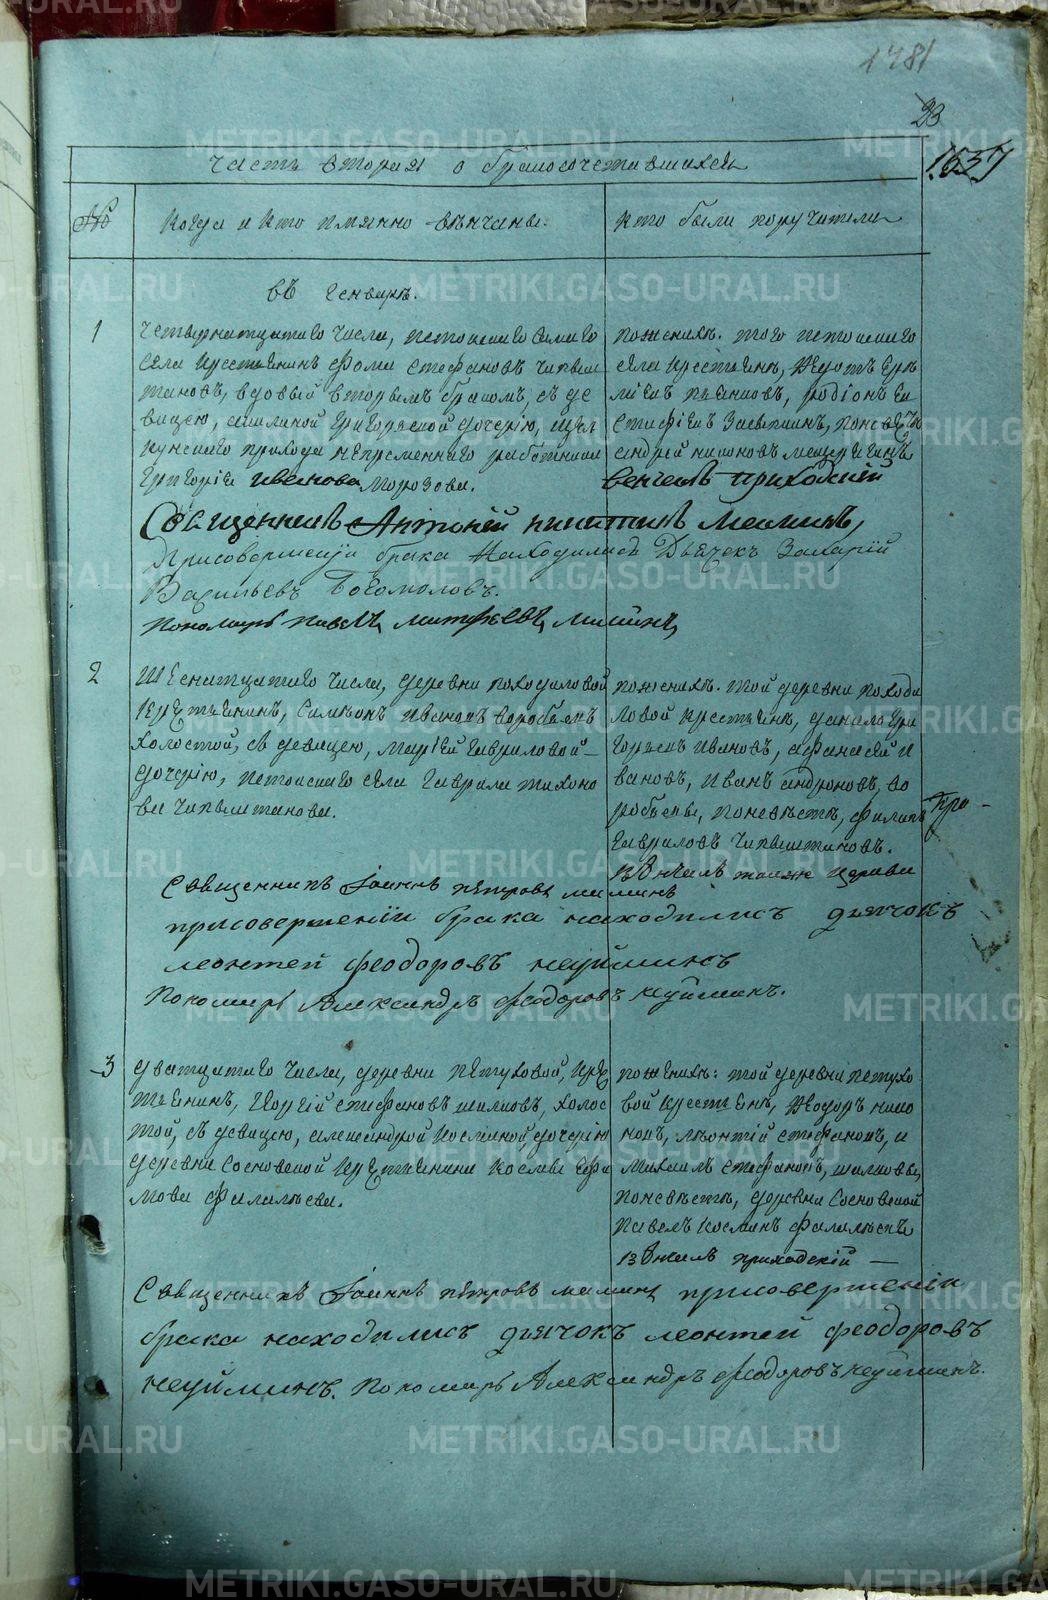 1481
23
1637
Часть вторая о бракосочетавшихся
№
Когда и кто имянно венчаны.
кто были поручители
въ Генваре.
1
четырнатцатаго числа, Кстоваго самаго
села крестьянинъ фома стефановъ чипыш
тановъ, вдовый вторымъ бракомъ, съ де
вицею, акилиной Григорьевой дочерію, щел
кунскаго прихода непременнаго работника
Григорія Иванова Морозова.
поженихе. того
села крестьяне, Федотъ
родіонъ ев
стафіевъ поневесте
андрей никоновъ
венчалъ приходскій
Священникъ Антоній никитинъ Маминъ,
Присовершеніи брака Находились Дьячекъ Захарій
Васильевъ Богомоловъ.
Пономарь Павелъ матфеевъ маминъ
2
Шеснатцатаго числа, деревни походиловой
крестьянинъ, Симеонъ Ивановъ воробьевъ
холостой, съ девицею, маріей Гавриловой
дочерію, села Гаврила тихоно
ва чипыштанова.
поженихе. той деревни походи
ловой крестьяне, данило гри
горьевъ ивановъ, афанасей и
вановъ, иванъ андроновъ, во
робьевы, поневесте, филипъ
Гавриловъ чипыштановъ.
Венчалъ тояже церкви
Священникъ Іоаннъ петровъ маминъ
присовершеніи брака находились дьячокъ
леонтей феодоровъ неуйминъ
Пономарь Александръ феодоровъ неуйминъ.
3
дватцатаго числа, деревни петуховой, кре
стьянинъ, Георгій стефановъ шилковъ, холос
той, съ девицею, александрой Косміной, дочерію
деревни Сосновской крестьянина космы ефи
мова фалалеева.
поженихе: той деревни петухо
вой крестьяне, Феодоръ нико
новъ, леонтій стефановъ, и
михаилъ стефановъ, шилковы,
поневесте, деревни Сосновской
Павелъ косминъ фалалеевъ
Венчалъ приходскій
Священникъ Іоаннъ петровъ маминъ присовершеніи
брака находились дьячокъ леонтей феодоровъ
неуйминъ. Пономарь Александръ феодоровъ неуйминъ.
METRIKI.GASO-URAL.RU